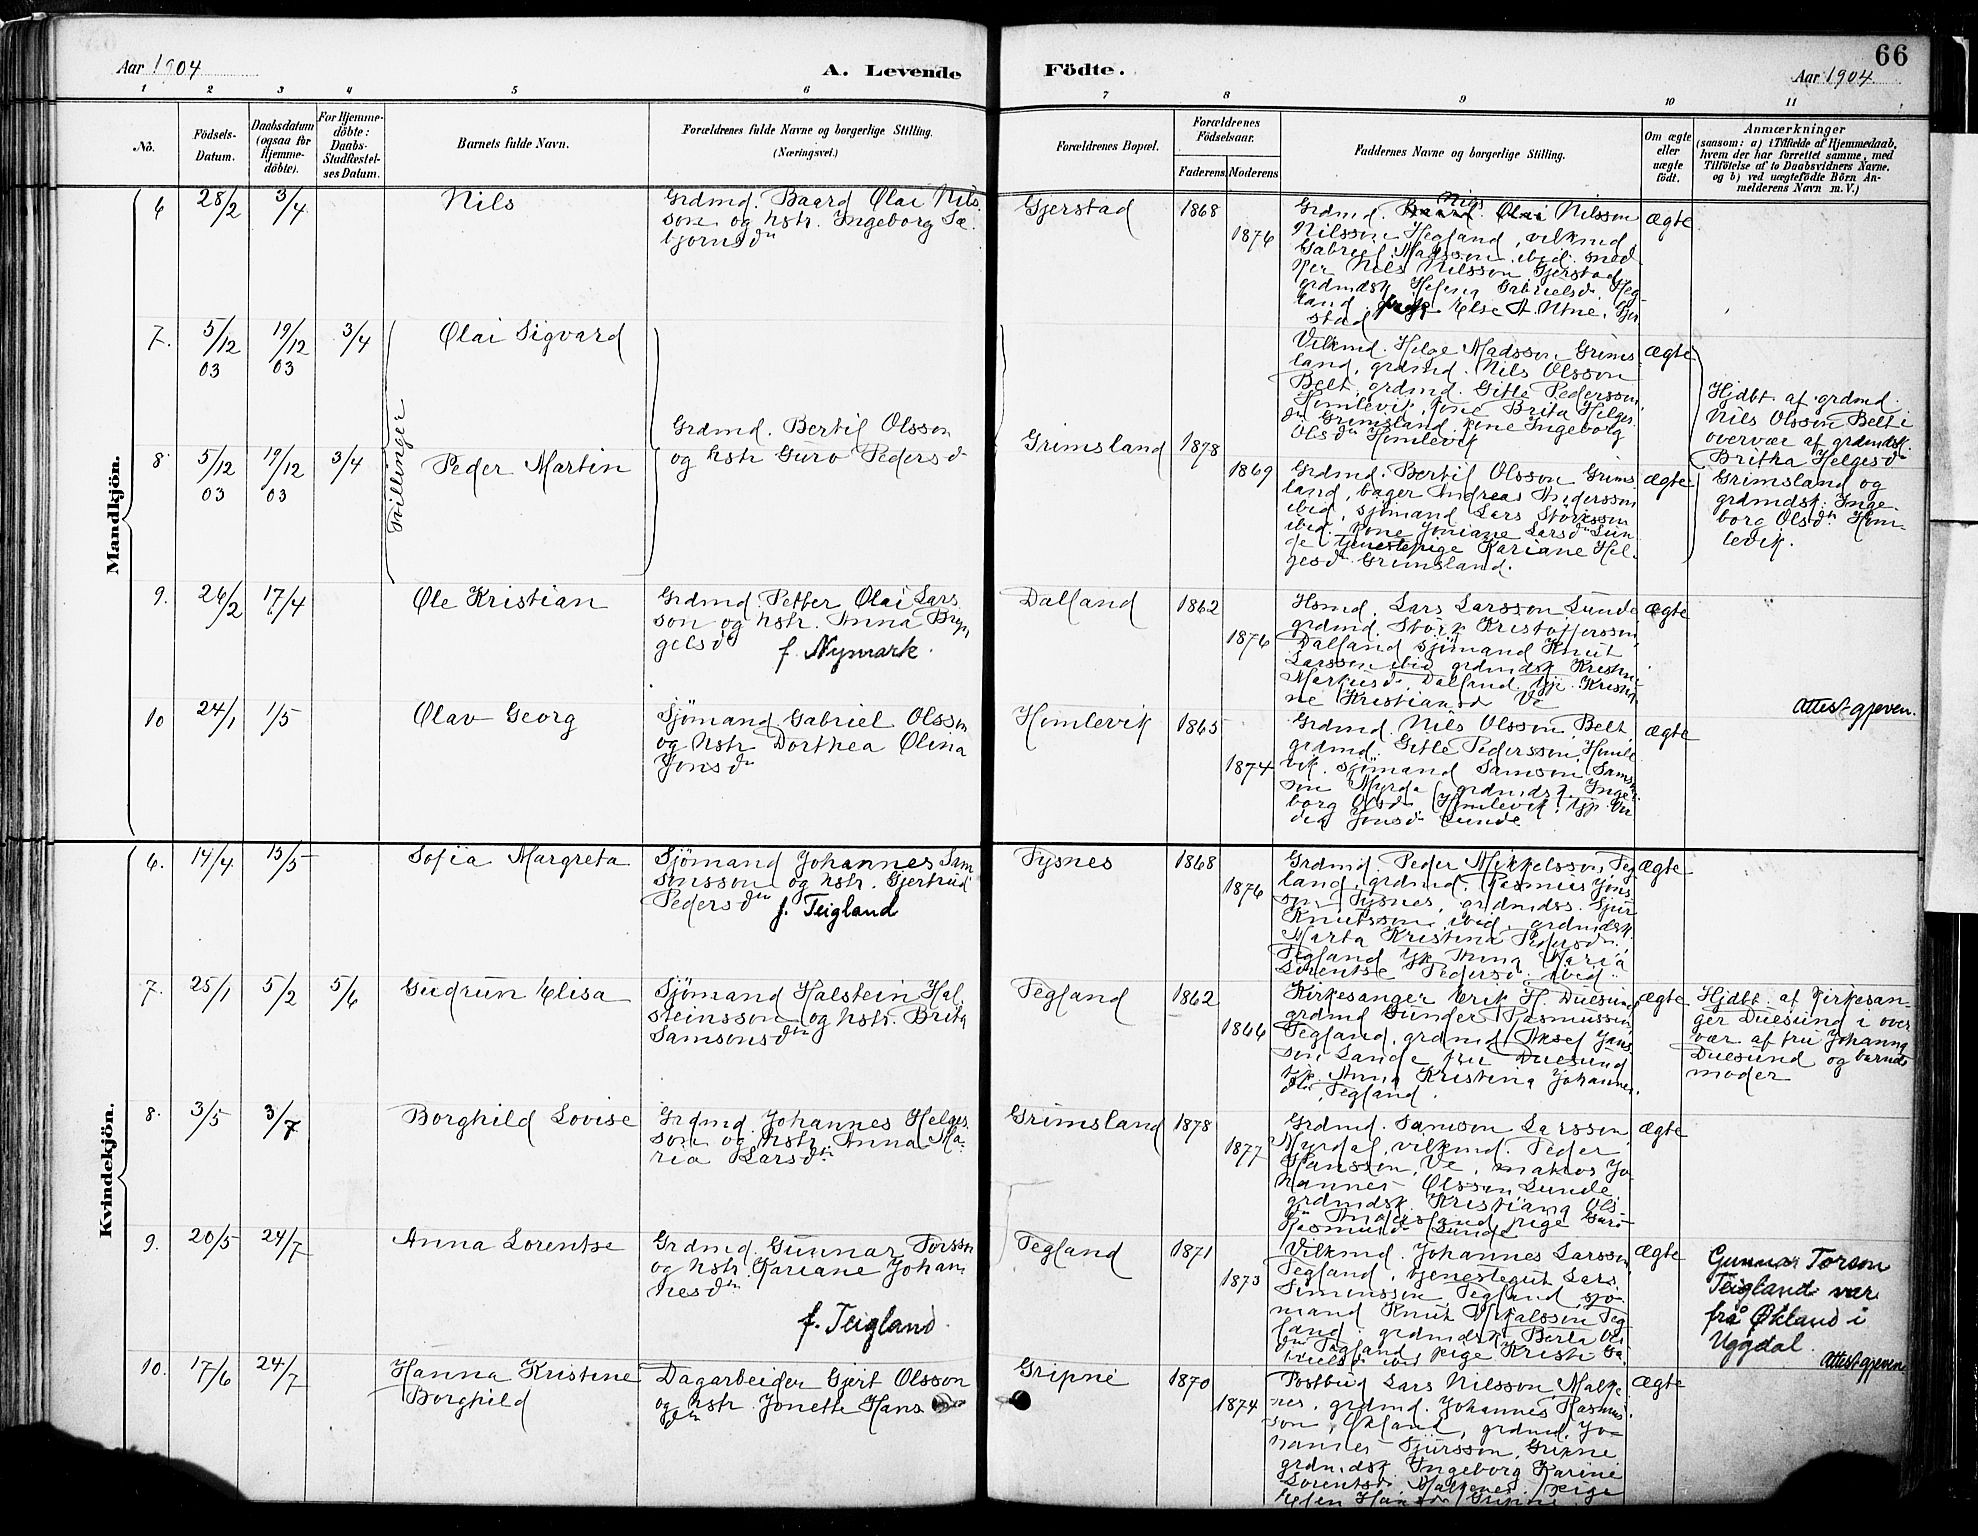 66
Aar 1904
A. Levende
Födte.
Aar 1904.
1 2 3 4 5 6 7 8 9 10 11
No.
Födsels-
Datum.
Daabsdatum
(ogsaa for
Hjemme-
döbte).
For Hjemme-
döbte:
Daabs-
Stadfæstel-
ses Datum.
Barnets fulde Navn.
Forældrenes fulde Navne og borgerlige Stilling.
(Næringsvei.)
Forældrenes Bopæl.
Forældrenes
Födselsaar.
Faderens
Moderens
Faddernes Navne og borgerlige Stilling.
Om ægte
eller
uægte
födt.
Anmærkninger
(saasom: a) i Tilfælde af Hjemmedaab,
hvem der har forrettet samme, med
Tilföielse af to Daabsvidners Navne.
og b) ved uægtefödte Börn An-
melderens Navn m. V.)
Mandkjön.
6
28/2
3/4
Nils
Grdmd. Baard Olai Nils
son og hstr. Ingeborg Sæ
bjornsdtr
Gjerstad
1868
1876
Nils
Grdmd. Baard Olai Nilsson
Nilsson Hegland, vilkmd
Gabriel Madsson ibid. sned
ker Nils Nilsson Gjerstad
grdmdsk Helena Gabrielsd. Heg
land pige Else A. Utne, Gjer
stad
ægte
7.
5/12
03
19/12
03
3/4
Olai Sigvard
Tvillinger
Grdmd. Bertil Olsson
og hstr Guro Pedersd
Grimsland
1878
1869
Vilkmd. Helge Madsson Grims
land, grdmd. Nils Olsson
Belt, grdmd. Gitle Pedersson
Homlevik, kone Brita Helges
dtr Grimsland, kone Ingeborg
Olsdtr Homlevik
ægte
Hjdbt. af grdmd.
Nils Olsson Belt i
overvær af grdmdsk.
Britha Helgesd
Grimsland og
grdmdsk. Inge
borg Olsdtr Hom-
levik.
8
5/12
03
19/12
03
3/4
Peder Martin
Grdmd. Bertil Olsson Grims
land, bager Andreas Andersson
ibid, sjömand Lars Störksson
ibid. kone Joniane Larsdtr Lun
de, tjenestepige Kariane Hel
gesd. Grimsland.
ægte
9.
26/2
17/4
Ole Kristian
Grdmd. Petter Olai Lars
son og hstr. Anna Bryn
gelsd
f. Nymark.
Dalland
1862
1876
Hsmd. Lars Larsson Lunde
grdmd. Störk Kristoffersson
Dalland sjömand Knut
Larsson ibid grdmdsk Kristine
Markusd. Dalland, tjp. Kristi
ne Kristiansd Ve
ægte
10
24/1
1/5
Olav Georg
Sjömand Gabriel Olsson
og hstr Dorthea Olina
Jonsd
Homlevik
1865
1874
Grdmd. Nils Olsson Belt
grdmd. Gitle Pedersson Homle
vik. Sjömand Samson Sams
son Myrda, grdmdsk. Inge
borg Olsd. Homlevik, tjp.
Jonsd Lunde
ægte
Attest gjeven.
Kvindekjön.
6.
14/4
15/5
Sofia Margreta
Sjömand Johannes Sam
sonsson og hstr. Gjertrud
Pedersdtr
f. Teigland
Tysnes
1868
1876
Grdmd. Peder Mikkelsson, Teg
land, grdmd. Rasmus Jons
son Tysnes, grdmdss. Sjur
Knutsson ibid, grdmdsk.
Marta Kristina Pedersd.
Tegland tjp. Anna Maria
Lorentse Pedersd. ibid.
ægte
7.
25/1
5/2
5/6
Gudrun Elisa
Sjömand Halstein Hal
steinsson og hstr. Brita
Samsonsdtr
Tegland
1862
1866
Kirkesanger Erik H. Duesund
grdmd Gunder Rasmussen
Tegland, grdmd Aksel Jans
son Lande fru Duesund
tjp. Anna Kristina Johannes
dtr, Tegland.
ægte
Hjdbt. af Kirkesan-
ger Duesund i over
vær af fru Johanna
Duesund og barnets
moder
8.
3/5
3/7
Borghild Lovise
Grdmd. Johannes Helges
son og hstr. Anna Ma
ria Larsdtr
Grimsland
1878
1877
Grdmd. Samson Larsson
Myrdal, vilkmd. Peder
Hansson, Ve, matros Jo
hannes Olsson Lunde
grdmdsk. Kristiana Ols-
dtr Andersland pige Guro
Rasmusd Lunde
ægte
9.
20/5
24/7
Anna Lorentse
Grdmd. Gunnar Torsson
og hstr. Kariane Johan
nesdtr
f. Teigland.
Tegland
1871
1873
Vilkmd. Johannes Larsson
Tegland, tjenestegut Lars
Simonsson Tegland, sjö-
mand Knut Mikalsson Teg
land. grdmdsk. Berta Ols
dtr Tegland pige Kristi Ga
brielsd ibid
ægte
Gunnar Torson
Teigland var
frå Økland i
Uggdal.
Attest gjeven
10.
17/6
24/7
Hanna Kristine
Borghild
Dagarbeider Gjert Olsson
og hstr. Jonette Hans
dtr
Gripne
1870
1874
Postbud Lars Nilsson Malke
nes, grdmd. Johannes Rasmus
son, Økland, grdmd. Jo-
hannes Sjursson, Gripne
grdmdsk. Ingeborg Karine
Lorentsd. Malkenes, pige
Elen Hansd Gripne
ægte